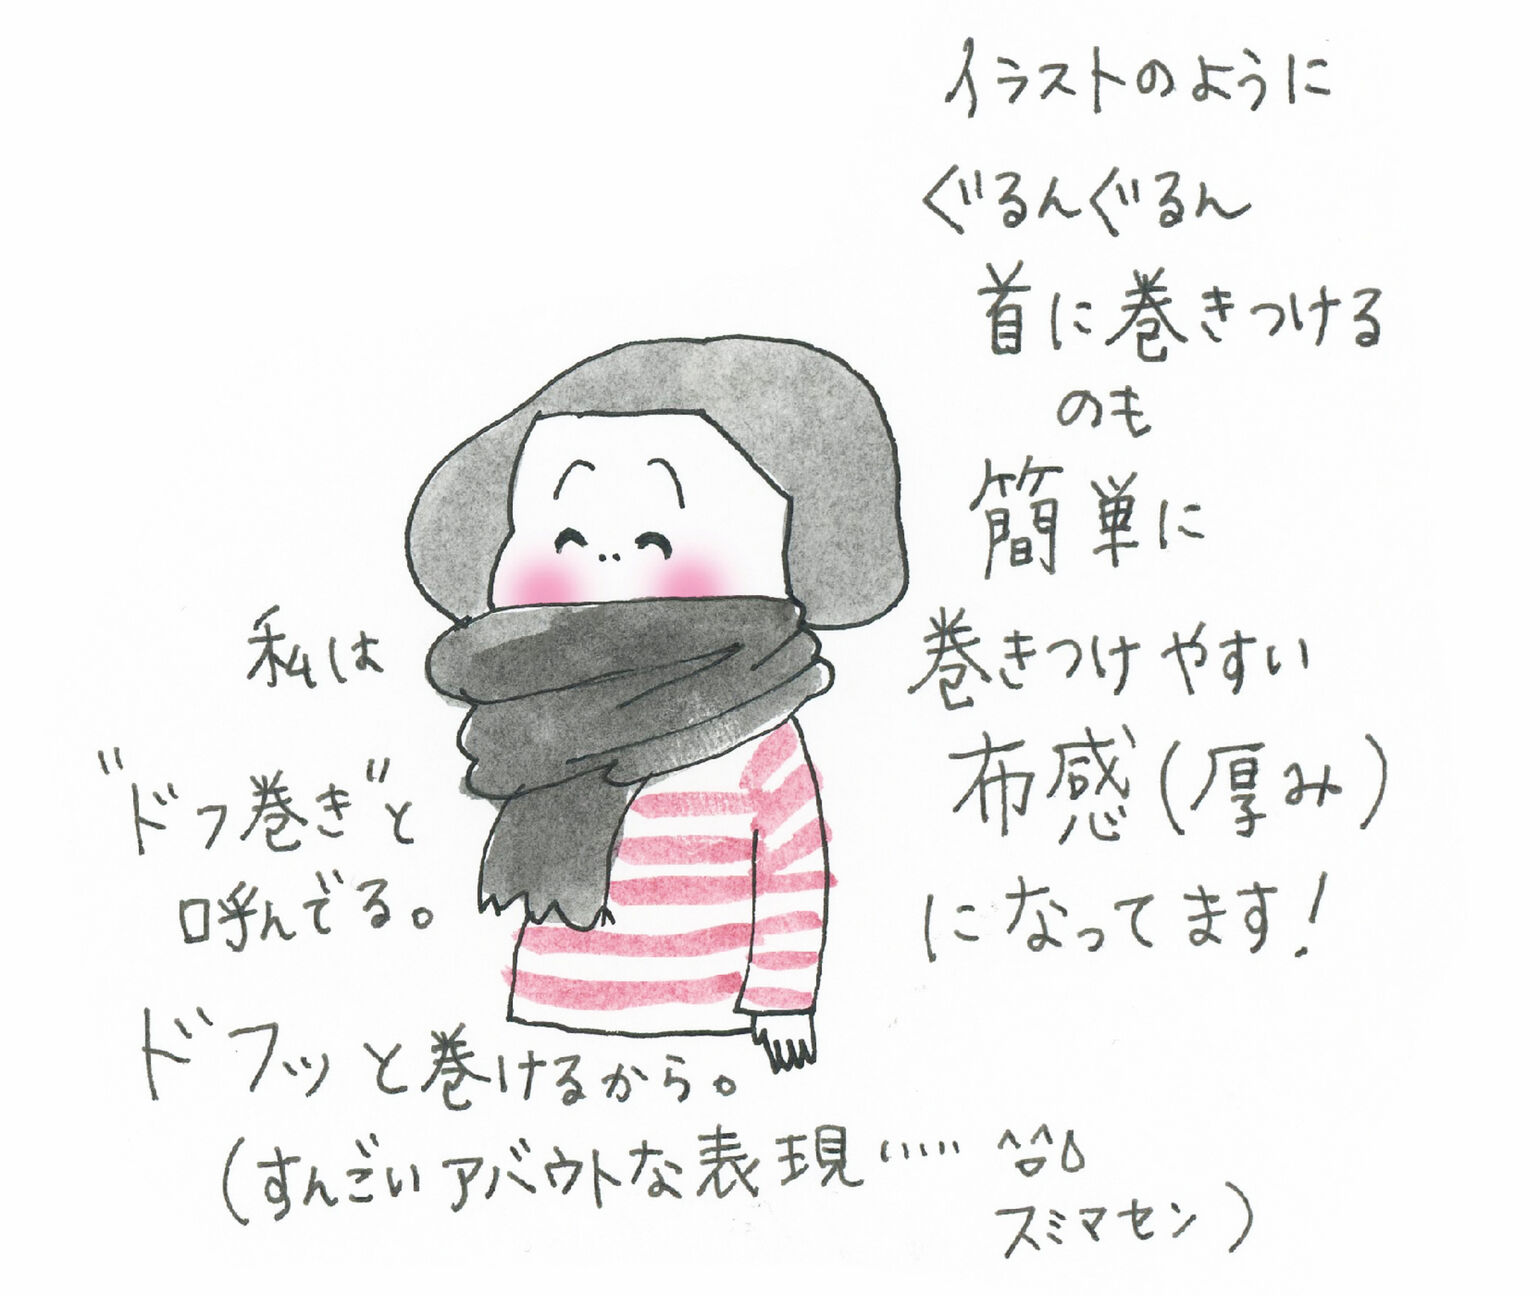 イラストのように
ぐるんぐるん
首に巻きつける
のも
簡単に
巻きつけやすい
布感(厚み)
になってます!
私は
"ドフ巻き"と
呼んでる。
ドフッと巻けるから。
(すんごいアバウトな表現……
スミマセン)